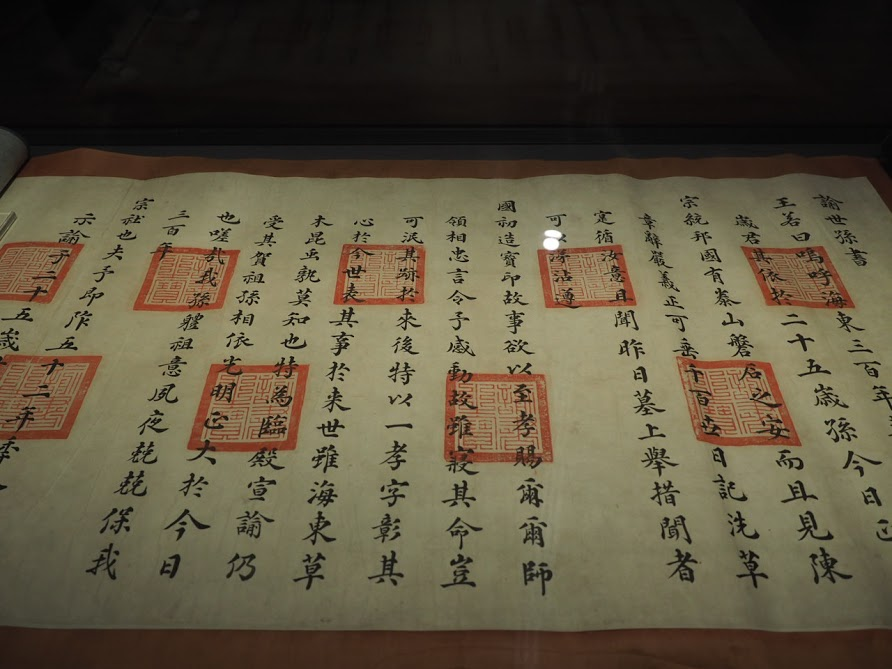 諭世孫書
王若曰嗚呼海東三百年
歲君其依於二十五歲孫今日已
宗統邦國有泰山磐居之安而且見陳
章辭嚴義正可垂千百世日記洗草
寔循汝意且聞昨日墓上舉措聞者
可以涕沾遵
國初造寶印故事欲以至孝賜爾爾師
領相忠言令予感動故雖寢其命豈
可泯其跡於來後特以一孝字彰其
心於今世表其事於來世雖海東草
木昆虫孰莫知也特為臨殿宣諭仍
受其賀祖孫相依光明正大於今日
也嗟哉我孫體祖意夙夜兢兢保我
三百年
宗社也夫予即阼五十二年季
示諭予二十五歲